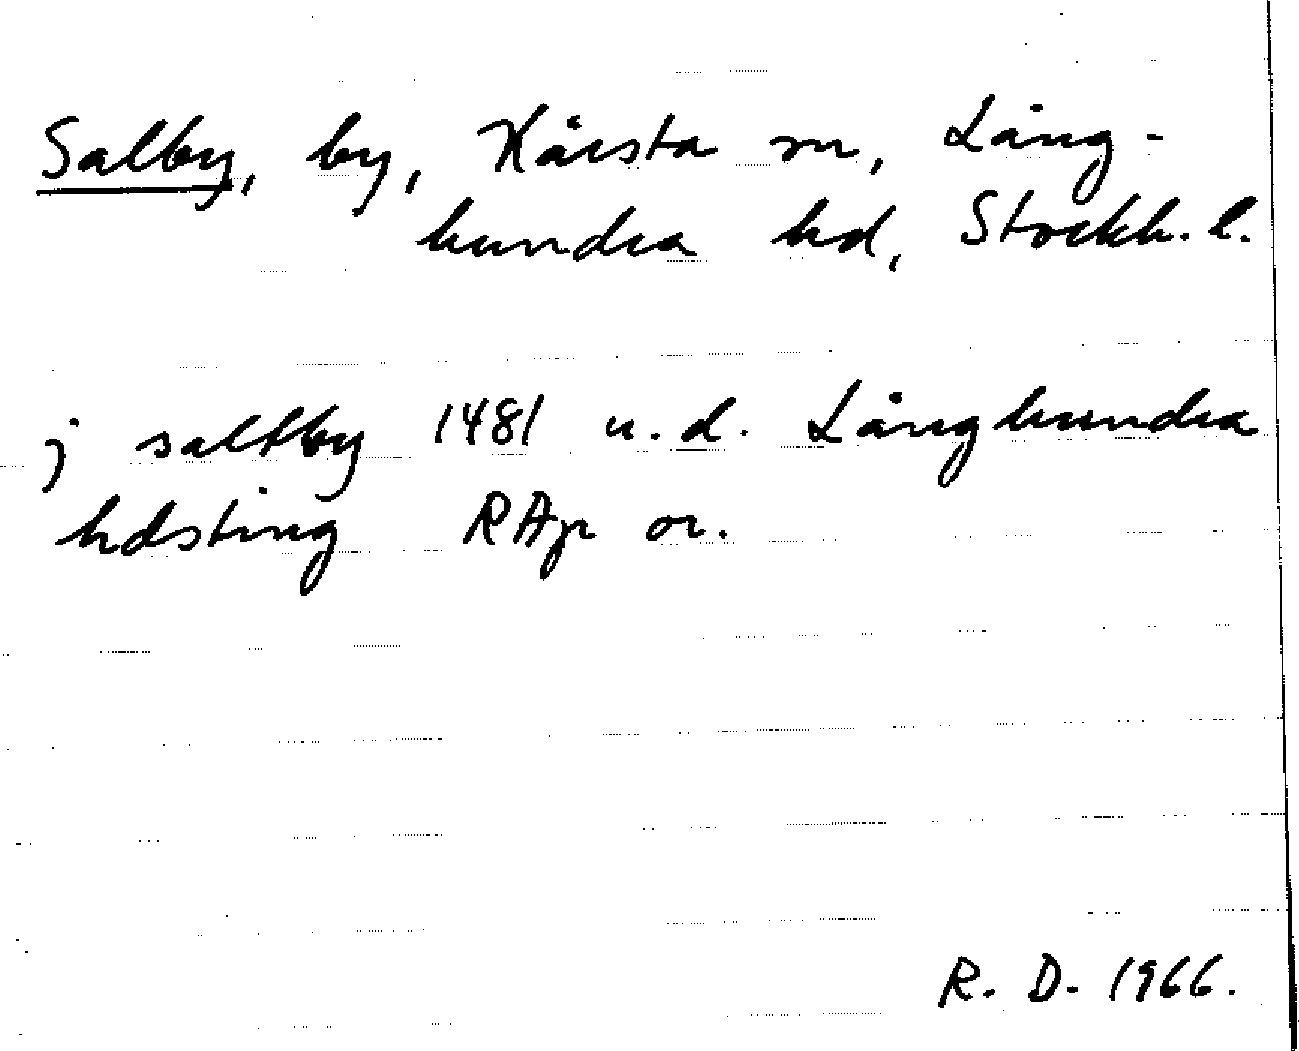 Salby, by, Kårsta sn, Lång-
hundra hd, Stockh. l.
j saltby 1481 u.d. Långhundra
hdsting RAp or.
R. D. 1966.